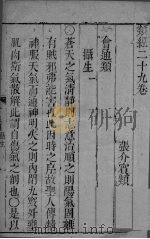 類經二十九卷
張介賓類
會通類
攝生一
○蒼天之氣清靜則志意治順之則陽氣固雖
有賊邪弗能害也此因時之序故聖人傳精
神服天氣而通神明失之則內閉九竅外壅
肌肉衛氣散解此謂自傷氣之削也○是以